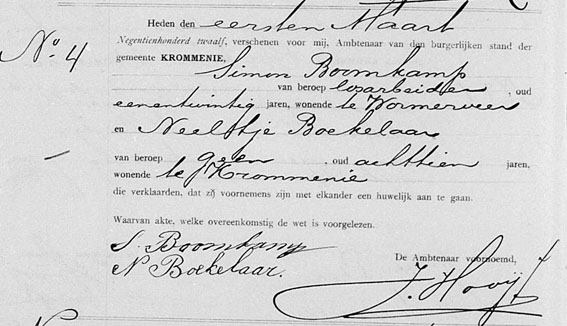 Heden den eersten Maart
Negentienhonderd twaalf, verschenen voor mij, Ambtenaar van den burgerlijken stand der
No. 4
gemeente KROMMENIE,
Simon Boomkamp
van beroep losarbeider, oud
eenentwintig jaren, wonende te Wormerveer
en Neeltje Boekelaar
van beroep geen, oud achttien jaren,
wonende te Krommenie
die verklaarden, dat zij voornemens zijn met elkander een huwelijk aan te gaan.
Waarvan akte, welke overeenkomstig de wet is voorgelezen.
S. Boomkamp
De Ambtenaar voornoemd,
N Boekelaar.